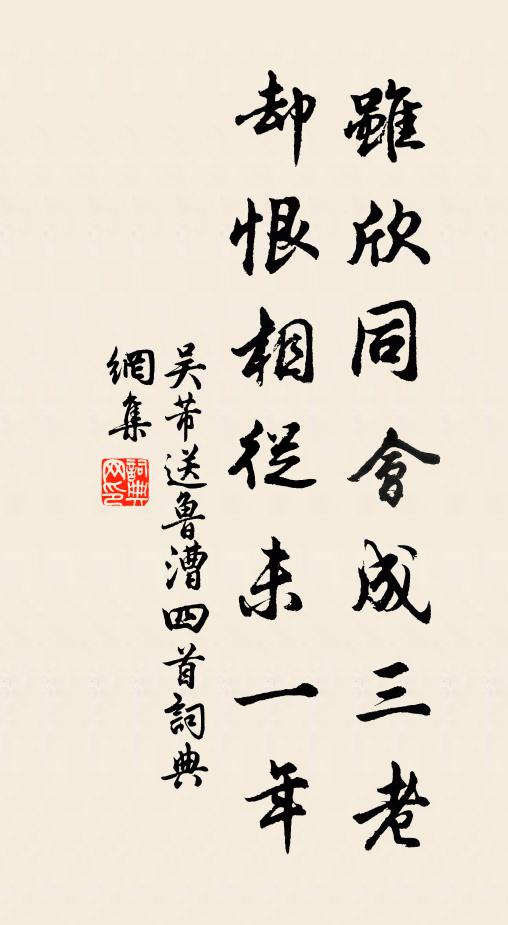 雖欣同會成三老
却恨相從未一年
吴芾送魯漕四首詞典
網集
詞典
网印